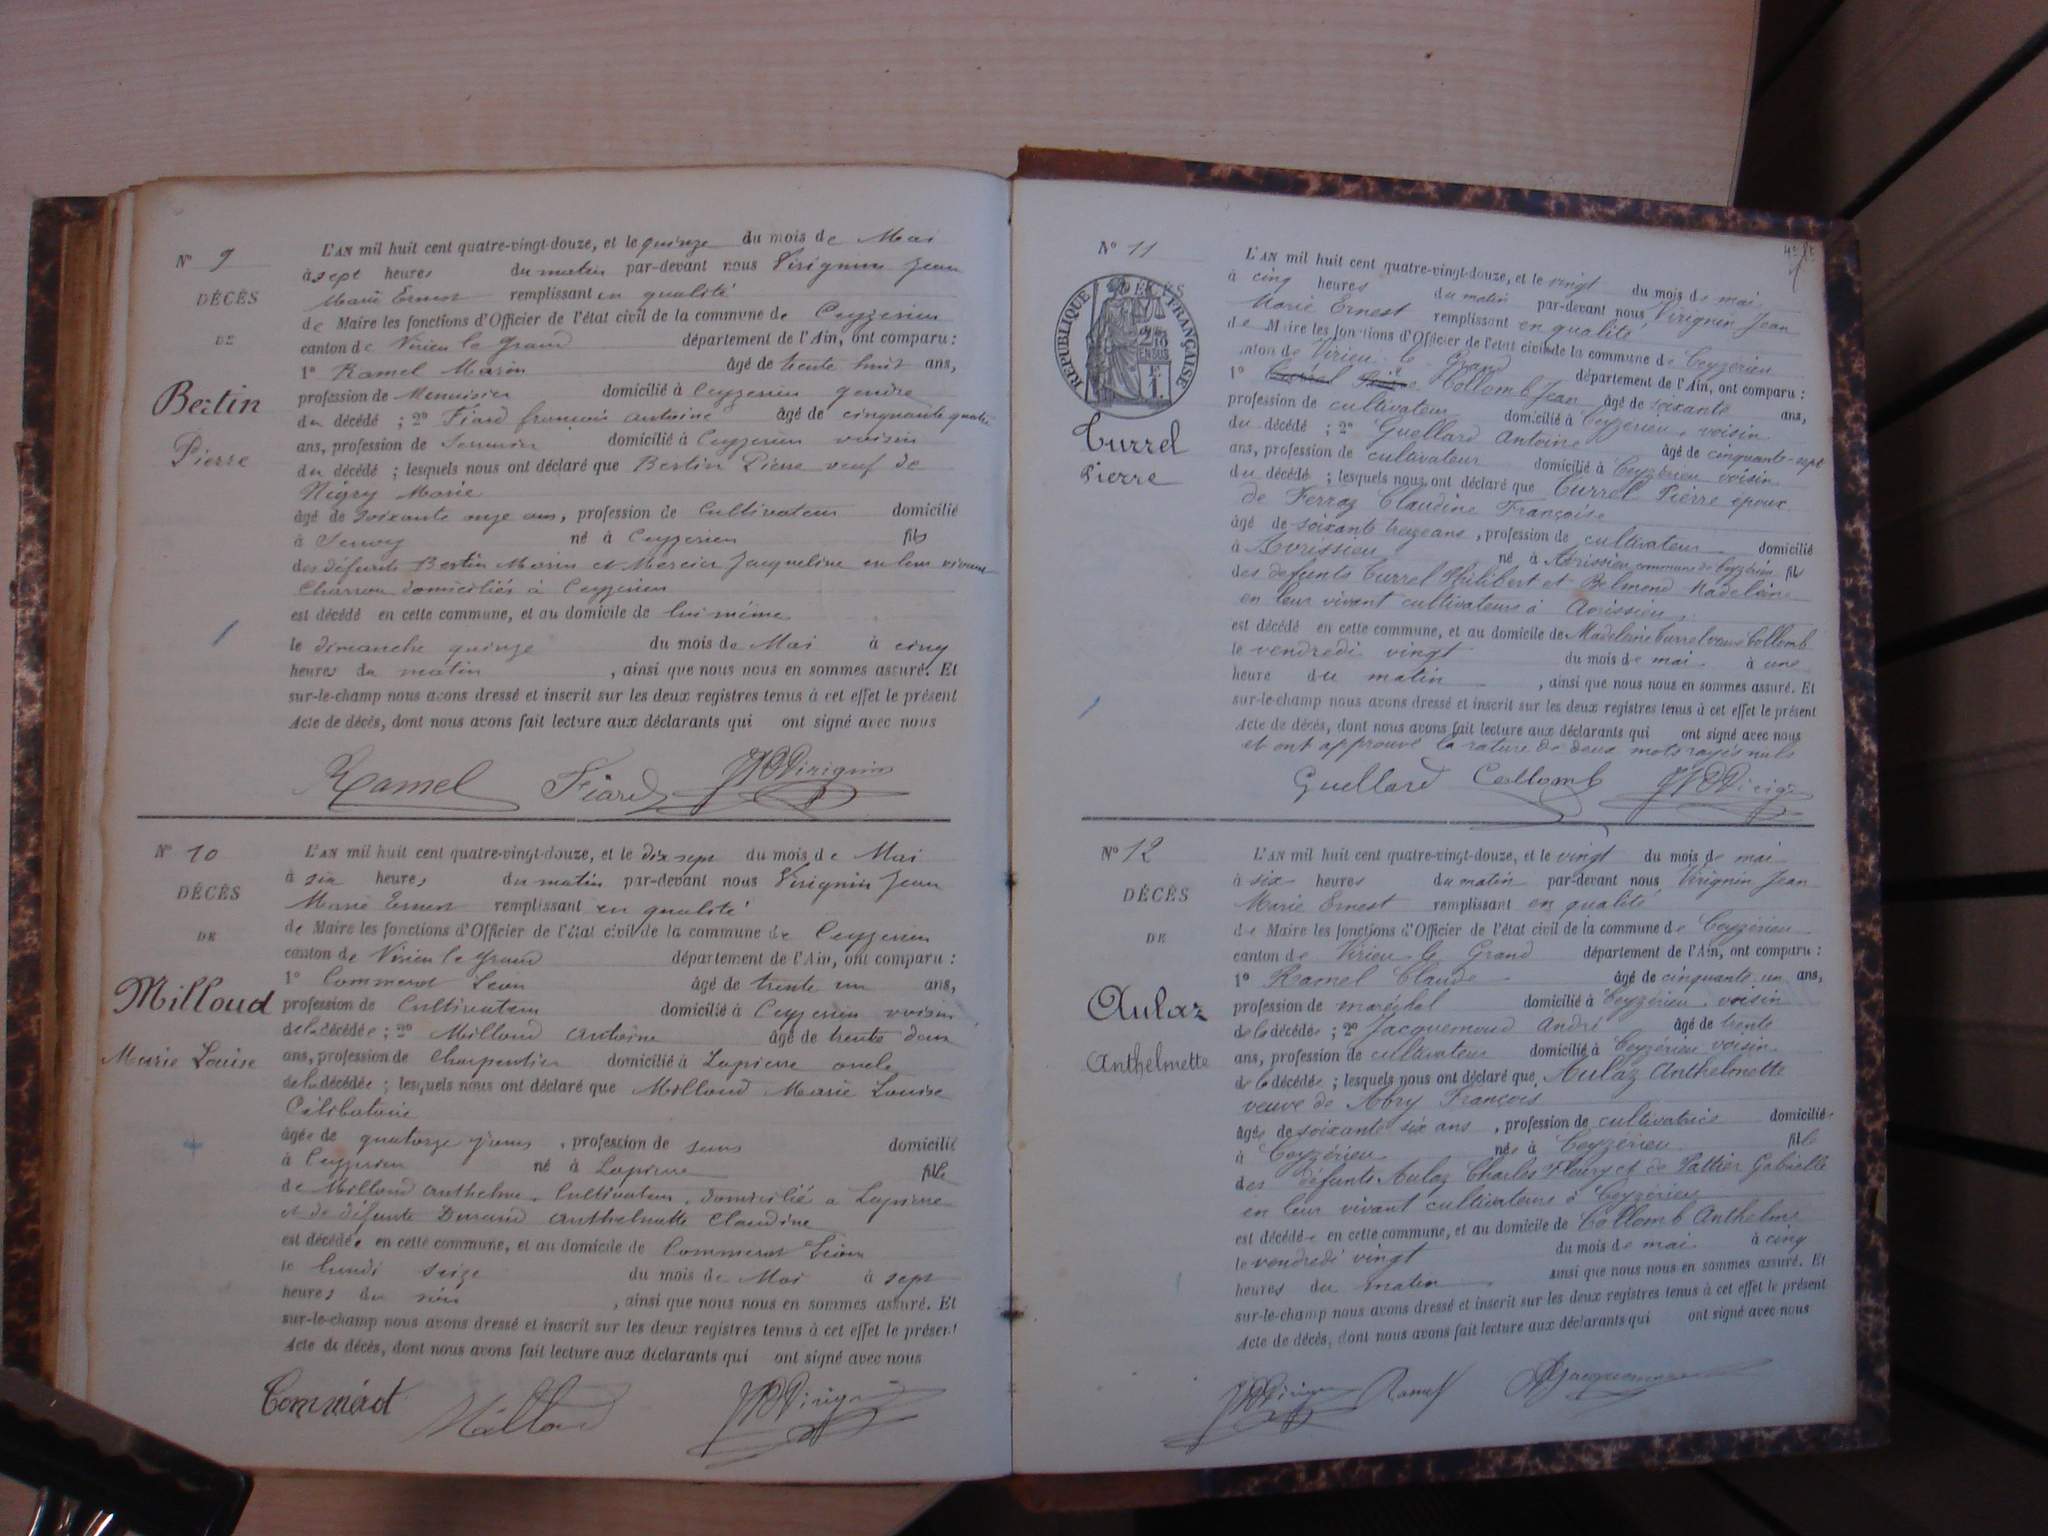 N° 9
DÉCÈS
DE
Bertin
Pierre
L'AN mil huit cent quatre-vingt-douze, et le quinze du mois de Mai
à sept heures du matin par-devant nous Virignin Jean
Marie Ernest remplissant en qualité
de Maire les fonctions d'Officier de l'état civil de la commune de Ceyzerieu
canton de Virieu le Grand département de l'Ain, ont comparu :
1° Ramel Marin âgé de trente huit ans,
profession de Menuisier domicilié à Ceyzerieu gendre
du décédé ; 2° Fiard françois antoine âgé de cinquante quatre
ans, profession de domicilié à Ceyzerieu voisin
du décédé ; lesquels nous ont déclaré que Bertin Pierre veuf de
Nigry Marie
âgé de soixante onze ans, profession de Cultivateur domicilié
à né à Ceyzerieu fils
des défunts Bertin Marin et Mercier Jacqueline en leur vivant
Charron domiciliés à Ceyzerieu
est décédé en cette commune, et au domicile de lui même
le dimanche quinze du mois de Mai à cinq
heures du matin , ainsi que nous nous en sommes assuré. Et
sur-le-champ nous avons dressé et inscrit sur les deux registres tenus à cet effet le présent
Acte de décès, dont nous avons fait lecture aux déclarants qui ont signé avec nous
Ramel Fiard Virignin
N° 10
DÉCÈS
DE
Milloud
Marie Louise
L'AN mil huit cent quatre-vingt-douze, et le dix sept du mois de Mai
à six heures du matin par-devant nous Virignin Jean
Marie Ernest remplissant en qualité
de Maire les fonctions d'Officier de l'état civil de la commune de Ceyzerieu
canton de Virieu le Grand département de l'Ain, ont comparu :
1° Commerot Léon âgé de trente un ans,
profession de Cultivateur domicilié à Ceyzerieu voisin
de la décédée ; 2° Milloud Antoine âgé de trente deux
ans, profession de Charpentier domicilié à Lapierre oncle
de la décédée ; lesquels nous ont déclaré que Milloud Marie Louise
Célibataire
âgée de quatorze jours , profession de sans domicilié
à Ceyzerieu né à Lapierre fille
de Milloud Anthelme, Cultivateur, domicilié à Lapierre
et de défunte Durand Anthelmette Claudine
est décédée en cette commune, et au domicile de Commerot Léon
le lundi seize du mois de Mai à sept
heures du soir , ainsi que nous nous en sommes assuré. Et
sur-le-champ nous avons dressé et inscrit sur les deux registres tenus à cet effet le présent
Acte de décès, dont nous avons fait lecture aux déclarants qui ont signé avec nous
Commérot Milloud Virignin
N° 11
DÉCÈS
RÉPUBLIQUE FRANÇAISE
2/10 EN SUS
Turrel
Pierre
L'AN mil huit cent quatre-vingt-douze, et le vingt du mois de mai
à cinq heures du matin par-devant nous Virignin Jean
Marie Ernest remplissant en qualité
de Maire les fonctions d'Officier de l'état civil de la commune de Ceyzérieu
canton de Virieu le Grand département de l'Ain, ont comparu :
1° Collomb Jean âgé de soixante ans,
profession de cultivateur domicilié à Ceyzérieu, voisin
du décédé ; 2° Guellard Antoine âgé de cinquante-sept
ans, profession de cultivateur domicilié à Ceyzérieu voisin
du décédé ; lesquels nous ont déclaré que Turrel Pierre époux
de Ferraz Claudine Françoise
âgé de soixante treize ans, profession de cultivateur domicilié
à Avrissieu né à Avrissieu commune de Ceyzérieu fils
des défunts Turrel Philibert et Belmond Madeleine
en leur vivant cultivateurs à Avrissieu
est décédé en cette commune, et au domicile de Madeleine Turrel veuve Collomb
le vendredi vingt du mois de mai à une
heure du matin , ainsi que nous nous en sommes assuré. Et
sur-le-champ nous avons dressé et inscrit sur les deux registres tenus à cet effet le présent
Acte de décès, dont nous avons fait lecture aux déclarants qui ont signé avec nous
et ont approuvé la rature de deux mots rayés nuls
Guellard Collomb Virignin
N° 12
DÉCÈS
DE
Aulaz
Anthelmette
L'AN mil huit cent quatre-vingt-douze, et le vingt du mois de mai
à six heures du matin par-devant nous Virignin Jean
Marie Ernest remplissant en qualité
de Maire les fonctions d'Officier de l'état civil de la commune de Ceyzérieu
canton de Virieu le Grand département de l'Ain, ont comparu :
1° Ramel Claude âgé de cinquante un ans,
profession de maréchal domicilié à Ceyzérieu, voisin
de la décédée ; 2° Jacquemoud André âgé de trente
ans, profession de cultivateur domicilié à Ceyzérieu voisin
de la décédée ; lesquels nous ont déclaré que Aulaz Anthelmette
veuve de Abry François
âgée de soixante six ans , profession de cultivatrice domiciliée
à Ceyzérieu née à Ceyzérieu fille
des défunts Aulaz Charles Fleury et de Pattier Gabrielle
en leur vivant cultivateurs à Ceyzérieu
est décédée en cette commune, et au domicile de Collomb Anthelme
le vendredi vingt du mois de mai à cinq
heures du matin ainsi que nous nous en sommes assuré. Et
sur-le-champ nous avons dressé et inscrit sur les deux registres tenus à cet effet le présent
Acte de décès, dont nous avons fait lecture aux déclarants qui ont signé avec nous
Virignin Ramel Jacquemoud